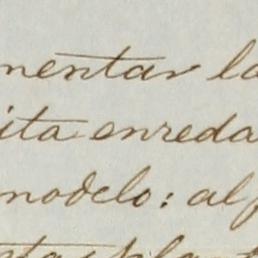 mentar la
ita enreda
modelo: al